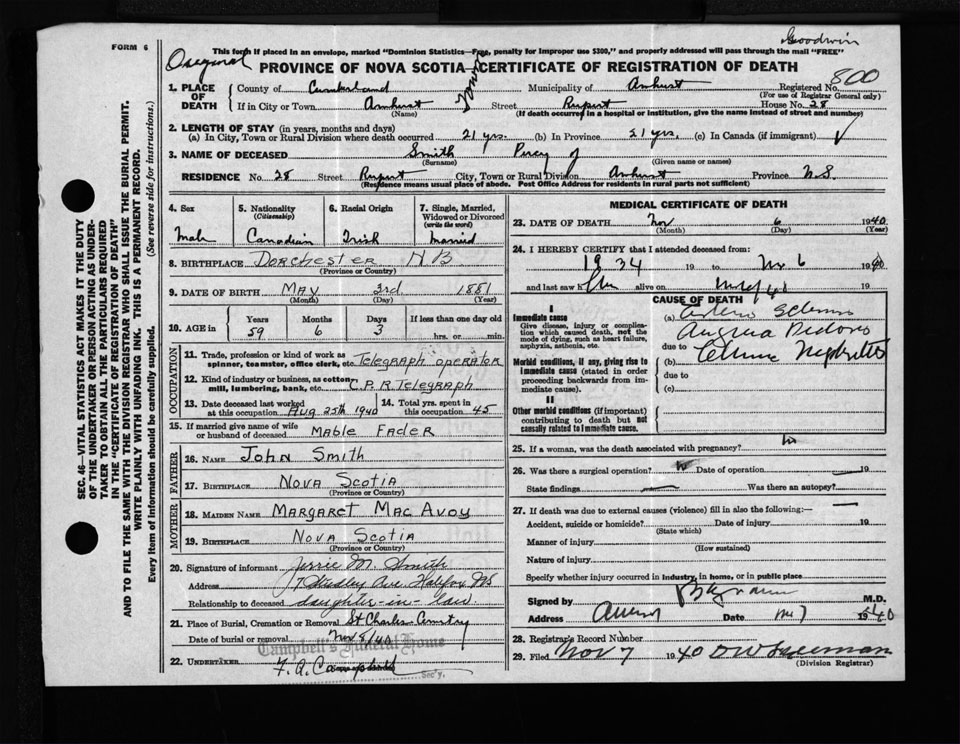 Goodwin
FORM 6
This form if placed in an envelope, marked "Dominion Statistics—Free, penalty for improper use $300," and properly addressed will pass through the mail "FREE"
Original
PROVINCE OF NOVA SCOTIA—CERTIFICATE OF REGISTRATION OF DEATH
800
1. PLACE OF DEATH County of Cumberland Municipality of Amherst Registered No.
(For use of Registrar General only)
If in City or Town Amherst Street Rupert House No. 28
(Name) (If death occurred in a hospital or institution, give the name instead of street and number)
2. LENGTH OF STAY (in years, months and days)
(a) In City, Town or Rural Division where death occurred 21 yrs. (b) In Province 21 yrs. (c) In Canada (if immigrant)
3. NAME OF DECEASED Smith Percy J
(Surname) (Given name or names)
RESIDENCE No. 28 Street Rupert City, Town or Rural Division Amherst Province N.S.
(Residence means usual place of abode. Post Office Address for residents in rural parts not sufficient)
4. Sex 5. Nationality (Citizenship) 6. Racial Origin 7. Single, Married, Widowed or Divorced (write the word)
Male Canadian Irish Married
8. BIRTHPLACE Dorchester NB
(Province or Country)
9. DATE OF BIRTH May 3rd 1881
(Month) (Day) (Year)
10. AGE in Years Months Days If less than one day old
59 6 3 hrs. or min.
OCCUPATION
11. Trade, profession or kind of work as spinner, teamster, office clerk, etc. Telegraph operator
12. Kind of industry or business, as cotton mill, lumbering, bank, etc. C.P.R. Telegraph
13. Date deceased last worked at this occupation Aug 25th 1940 14. Total yrs. spent in this occupation 45
15. If married give name of wife or husband of deceased Mable Fader
FATHER
16. NAME John Smith
17. BIRTHPLACE Nova Scotia
(Province or Country)
MOTHER
18. MAIDEN NAME Margaret MacAvoy
19. BIRTHPLACE Nova Scotia
(Province or Country)
20. Signature of informant M. Smith
Address 7 Studley Ave. Halifax NS
Relationship to deceased daughter-in-law.
21. Place of Burial, Cremation or Removal St Charles Cemetry
Date of burial or removal Nov 8/40
Campbell's Funeral Home
22. UNDERTAKER F. A. Campbell
Sec'y.
MEDICAL CERTIFICATE OF DEATH
23. DATE OF DEATH Nov 6 1940
(Month) (Day) (Year)
24. I HEREBY CERTIFY that I attended deceased from:
1934 19 to Nov 6 1940
and last saw h alive on 19
CAUSE OF DEATH
I
Immediate cause
Give disease, injury or complication which caused death, not the mode of dying, such as heart failure, asphyxia, asthenia, etc.
(a)
Angina
due to
Morbid conditions, if any, giving rise to immediate cause (stated in order proceeding backwards from immediate cause).
(b) Nephritis
due to
(c)
II
Other morbid conditions (if important) contributing to death but not causally related to immediate cause.
25. If a woman, was the death associated with pregnancy? No
26. Was there a surgical operation? Date of operation 19
State findings Was there an autopsy?
27. If death was due to external causes (violence) fill in also the following:—
Accident, suicide or homicide? Date of injury 19
(State which)
Manner of injury
(How sustained)
Nature of injury
Specify whether injury occurred in industry, in home, or in public place
Signed by M.D.
Address Date 1940
28. Registrar's Record Number
29. Filed Nov 7 1940
(Division Registrar)
SEC. 46—VITAL STATISTICS ACT MAKES IT THE DUTY
OF THE UNDERTAKER OR PERSON ACTING AS UNDERTAKER
TO OBTAIN ALL THE PARTICULARS REQUIRED
IN THE "CERTIFICATE OF REGISTRATION OF DEATH"
AND TO FILE THE SAME WITH THE DIVISION REGISTRAR WHO SHALL ISSUE THE BURIAL PERMIT.
WRITE PLAINLY WITH UNFADING INK. THIS IS A PERMANENT RECORD.
Every item of information should be carefully supplied. (See reverse side for instructions.)